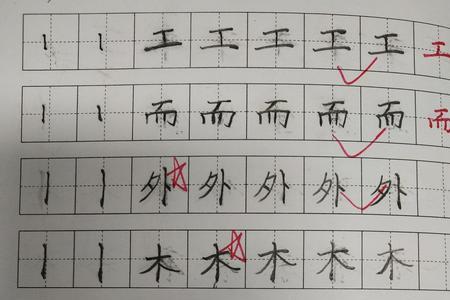 丨丨工工工工工工
丨丨而而而而而而
丨丨外外外外外
丨丨木木木木木